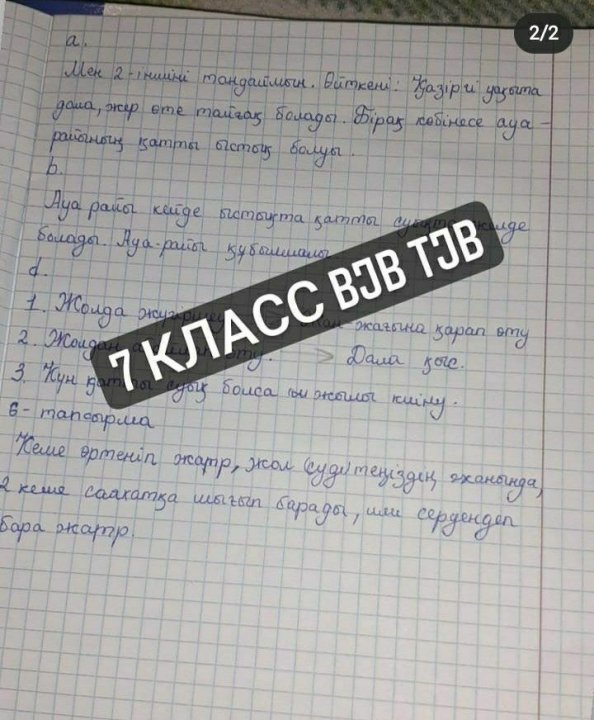 2/2
a.
Мен 2-іншіні таңдаймын. Өйткені: Қазіргі уақыта
дала, жер өте тайғақ болады. Бірақ көбінесе ауа-
райының қатты ыстық болуы.
b.
Ауа райы кейде ыстықта қатты желде
болады. Ауа-райы құбылмалы
d.
1. Жолда жағына қарап өту
2. Жолдан өту. > Дала қыс.
3. Күн қатты суық болса жылы киіну.
7 КЛАСС BJB TJB
6-тапсырма
Кеме өртеніп жатр, жол (суді) теңіздің жанында,
2 кеме саяхатқа шығып барады, или сердендеп
бара жатр.